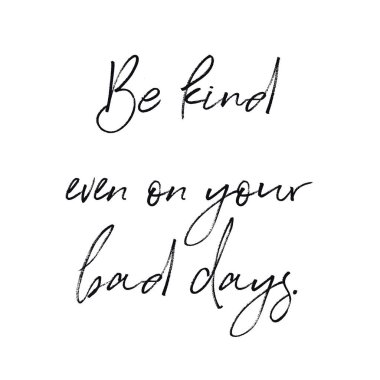 Be kind
even on your
bad days.